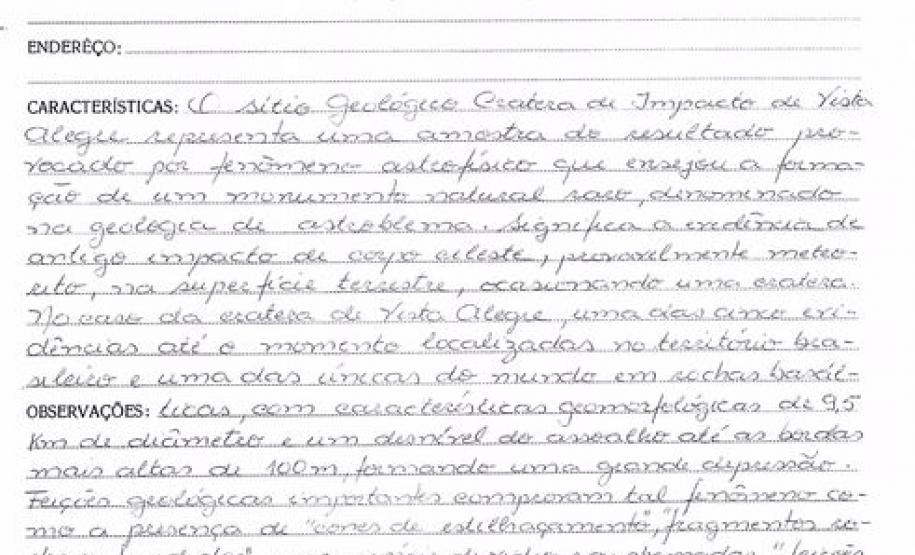 ENDERÊÇO:
CARACTERÍSTICAS: O sítio Geológico Cratera de Impacto de Vista
Alegre representa uma amostra do resultado pro-
vocado por fenômeno astrofísico que ensejou a forma-
ção de um monumento natural raro, denominado
na geologia de astroblema. Significa a evidência de
antigo impacto de corpo celeste, provavelmente meteo-
rito, na superfície terrestre, ocasionando uma cratera.
No caso da cratera de Vista Alegre, uma das cinco evi-
dências até o momento localizadas no território bra-
sileiro e uma das únicas do mundo em rochas basál-
OBSERVAÇÕES: ticas, com características geomorfológicas de 9,5
Km de diâmetro e um desnível do assoalho até as bordas
mais altas de 100m, formando uma grande depressão.
Feições geológicas importantes comprovam tal fenômeno co-
mo a presença de "cones de estilhaçamento", "fragmentos